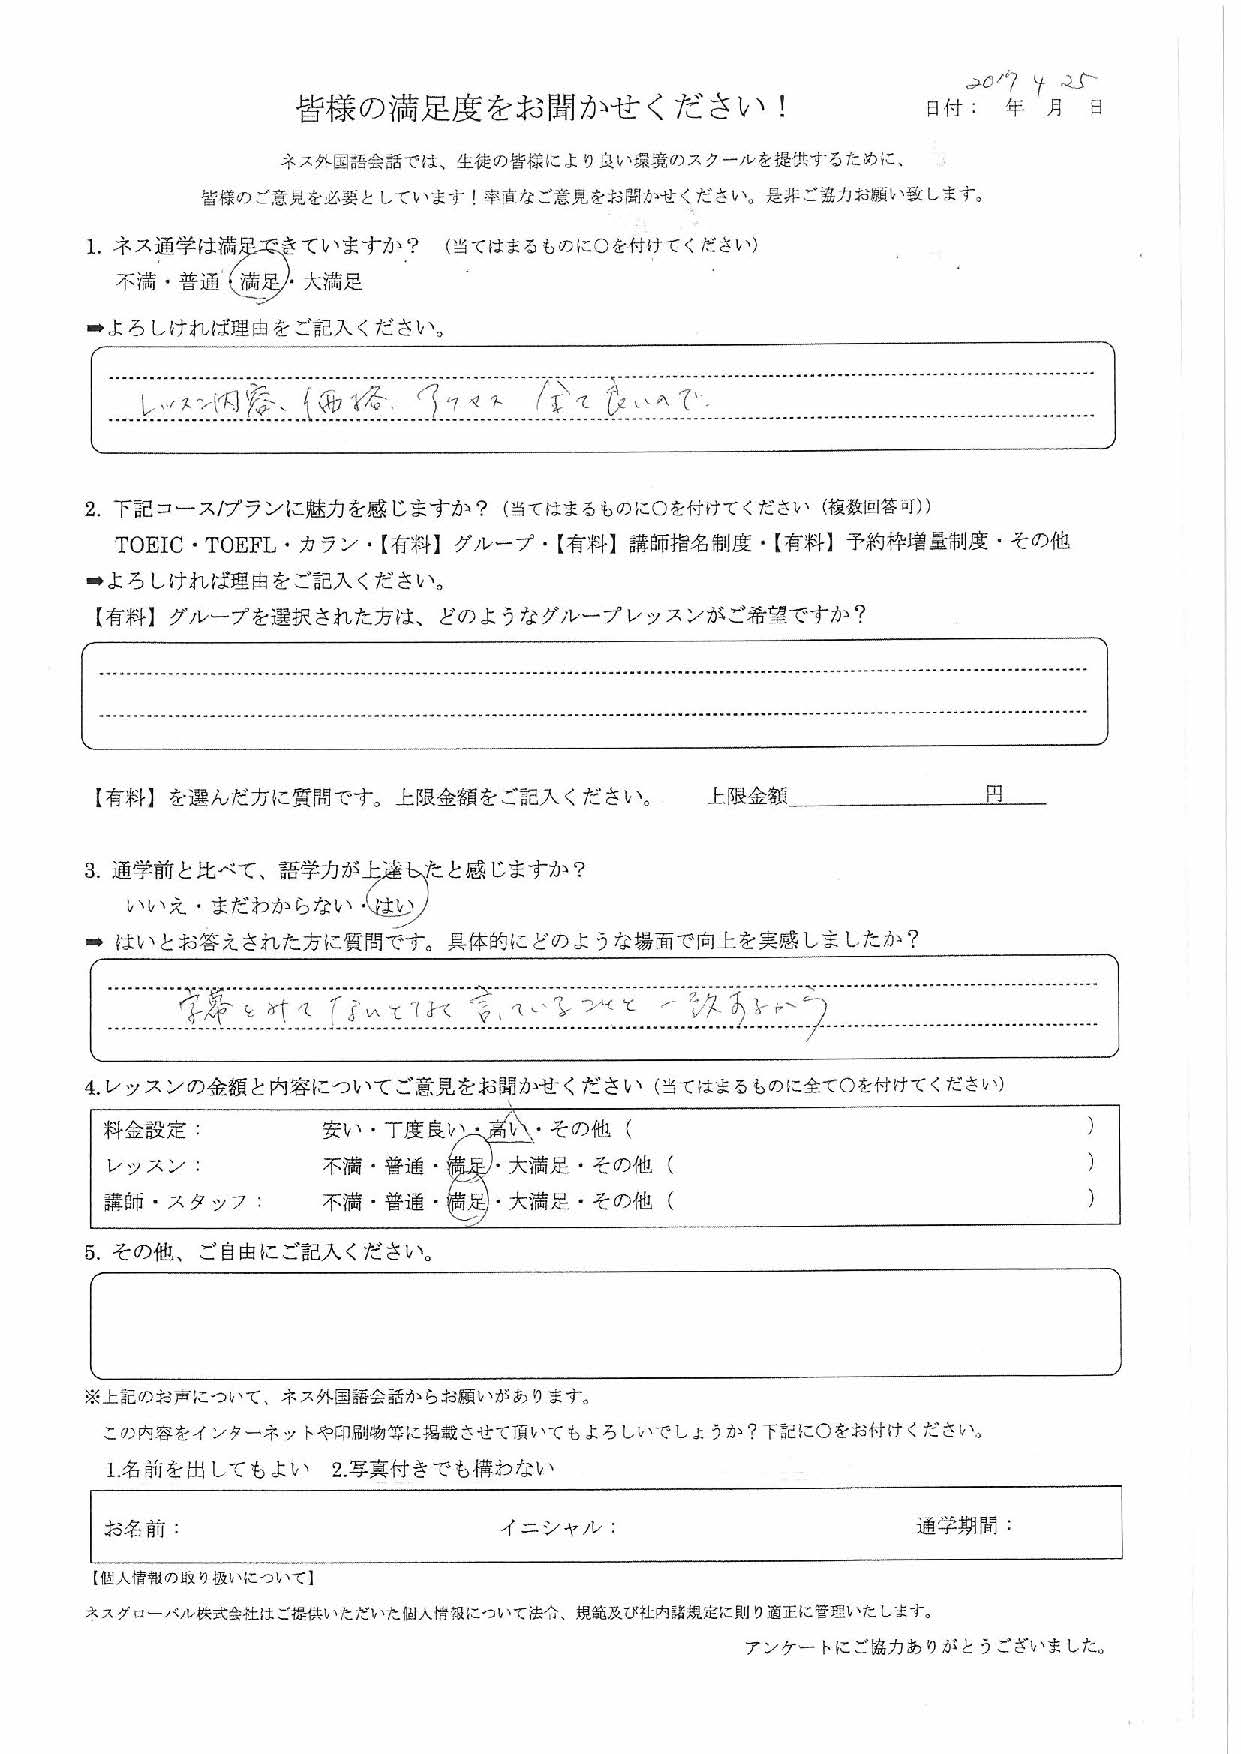 2017 4 25
皆様の満足度をお聞かせください！
日付： 年 月 日
ネス外国語会話では、生徒の皆様により良い環境のスクールを提供するために、
皆様のご意見を必要としています！率直なご意見をお聞かせください。是非ご協力お願い致します。
1. ネス通学は満足できていますか？ （当てはまるものに○を付けてください）
不満・普通・満足・大満足
➡よろしければ理由をご記入ください。
レッスン内容、価格、アクセス 全て良いので。
2. 下記コース/プランに魅力を感じますか？（当てはまるものに○を付けてください（複数回答可））
TOEIC・TOEFL・カラン・【有料】グループ・【有料】講師指名制度・【有料】予約枠増量制度・その他
➡よろしければ理由をご記入ください。
【有料】グループを選択された方は、どのようなグループレッスンがご希望ですか？
【有料】を選んだ方に質問です。上限金額をご記入ください。 上限金額 円
3. 通学前と比べて、語学力が上達したと感じますか？
いいえ・まだわからない・はい
➡ はいとお答えされた方に質問です。具体的にどのような場面で向上を実感しましたか？
字幕とみて 言っていることと一致あるから
4.レッスンの金額と内容についてご意見をお聞かせください（当てはまるものに全て○を付けてください）
料金設定： 安い・丁度良い・高い・その他（ ）
レッスン： 不満・普通・満足・大満足・その他（ ）
講師・スタッフ： 不満・普通・満足・大満足・その他（ ）
5. その他、ご自由にご記入ください。
※上記のお声について、ネス外国語会話からお願いがあります。
この内容をインターネットや印刷物等に掲載させて頂いてもよろしいでしょうか？下記に○をお付けください。
1.名前を出してもよい 2.写真付きでも構わない
お名前： イニシャル： 通学期間：
【個人情報の取り扱いについて】
ネスグローバル株式会社はご提供いただいた個人情報について法令、規範及び社内諸規定に則り適正に管理いたします。
アンケートにご協力ありがとうございました。